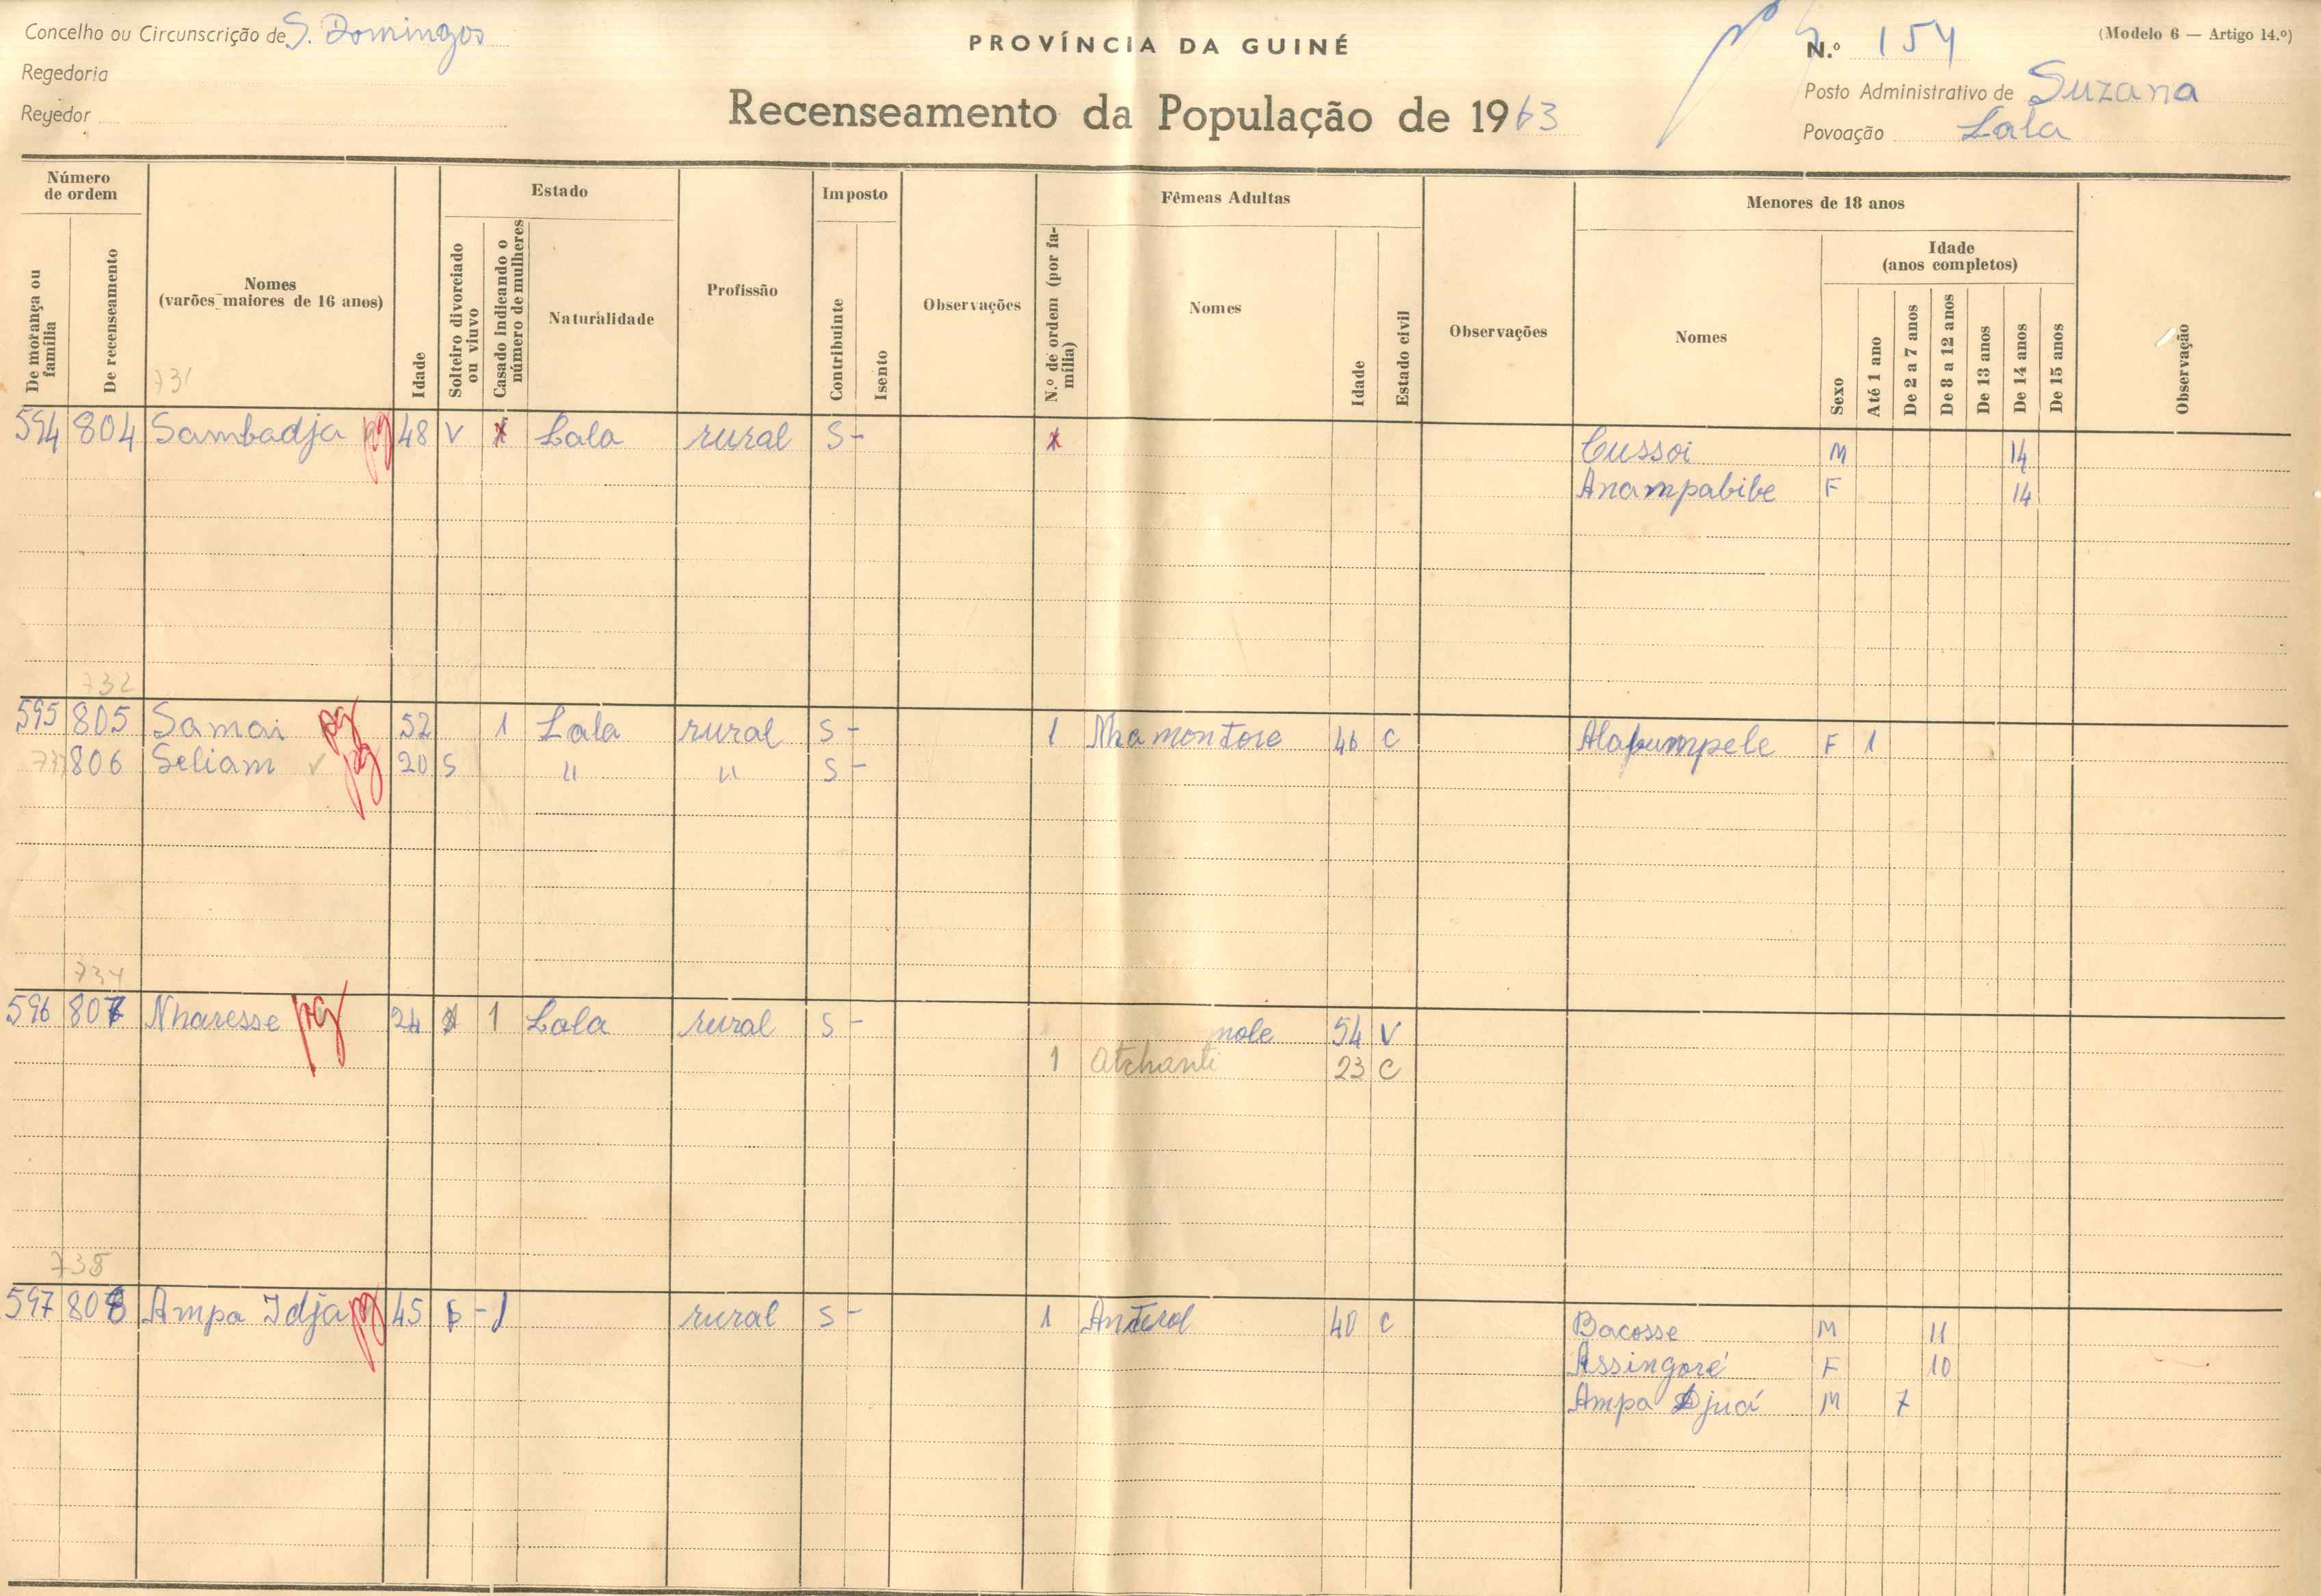 Concelho ou Circunscrição de S. Domingos
Regedoria
Regedor
PROVÍNCIA DA GUINÉ
Recenseamento da População de 1963
(Modelo 6 — Artigo 14.º)
N.º 154
Posto Administrativo de Suzana
Povoação Lala
Número de ordem
De morança ou família
De recenseamento
Nomes
(varões maiores de 16 anos)
731
Idade
Estado
Solteiro divorciado ou viuvo
Casado indicando o número de mulheres
Naturalidade
Profissão
Imposto
Contribuinte
Isento
Observações
Fêmeas Adultas
N.º de ordem (por família)
Nomes
Idade
Estado civil
Observações
Menores de 18 anos
Nomes
Sexo
Idade
(anos completos)
Até 1 ano
De 2 a 7 anos
De 8 a 12 anos
De 13 anos
De 14 anos
De 15 anos
Observação
594 804 Sambadja pg 48 V Lala rural S - Cussoi M 14
Anampabibe F 14
732
595 805 Samai pg 52 1 Lala rural S - 1 Nhamontore 46 C Alafumpele F 1
806 Seliam pg 20 S " " S -
734
596 807 Nharesse pg 24 1 Lala rural S - nole 54 V
1 Atchanti 23 C
735
597 808 Ampa Idja pg 45 - 1 rural S - 1 Anterol 40 C Bacosse M 11
Assingoré F 10
Ampa Djuá M 7